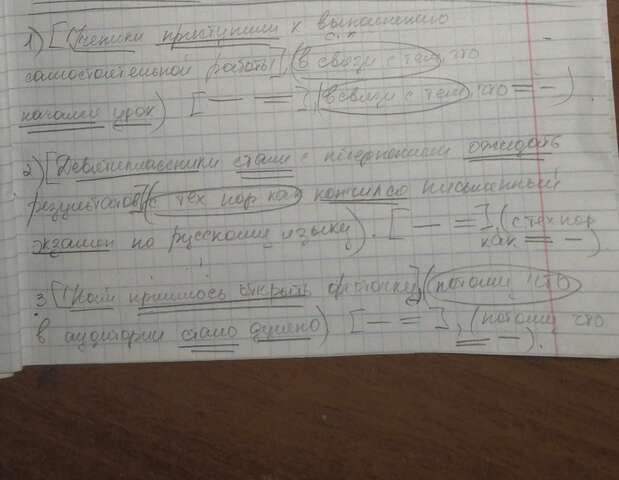 1) [Ученики приступили к выполнению
с.п.
самостоятельной работы], (в связи с тем, что
начался урок) [— =], (в связи с тем, что = —).
2) [Девятиклассники стали с нетерпением ожидать
результатов], (с тех пор как кончился письменный
экзамен по русскому языку). [— =], (с тех пор
как = —).
3. [Нам пришлось открыть форточку], (потому что
в аудитории стало душно) [— =], (потому что
= —).